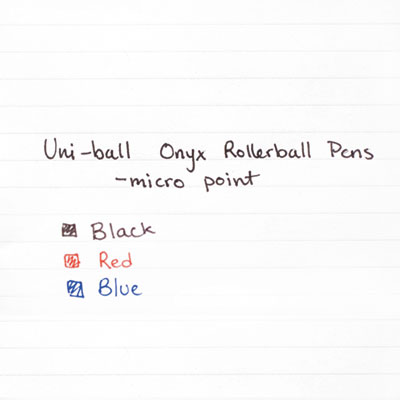 Uni-ball Onyx Rollerball Pens
-micro point
Black
Red
Blue